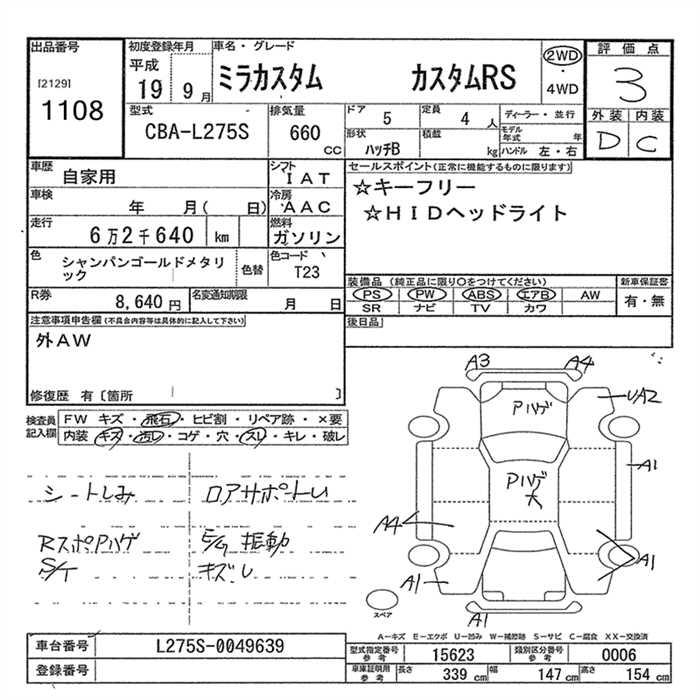 出品番号
[2129]
1108
初度登録年月
平成
19 9 月
車名・グレード
ミラカスタム カスタムRS
2WD
・
4WD
評価点
3
外装 内装
D C
型式
CBA-L275S
排気量
660
CC
ドア
5
定員
4 人
形状
ハッチB
積載
kg
ディーラー・並行
モデル年式 年
ハンドル 左・右
車歴
自家用
シフト
IAT
車検
年 月( 日)
冷房
AAC
走行
6万2千640 km
燃料
ガソリン
色
シャンパンゴールドメタリ
ック
色替
色コード
T23
R券
8,640 円
名変通知期限
月 日
セールスポイント(正常に機能するものに限ります)
☆キーフリー
☆HIDヘッドライト
装備品 (純正品に限り○をつけてください)
PS PW ABS エアB AW
SR ナビ TV カワ
新車保証書
有・無
後日品
注意事項申告欄(不具合内容等は具体的に記入して下さい)
外AW
修復歴 有〔箇所 〕
検査員
記入欄
FW キズ・飛石・ヒビ割・リペア跡・×要
内装 キズ・汚レ・コゲ・穴・スレ・キレ・破レ
シートしみ
ロアサポートレ
RスポPハゲ
E/G 振動
S/T
キズレ
A3
A4
Pハゲ
UA2
Pハゲ
大
A1
A4
A1
A1
A1
スペア
A-キズ E-エクボ U-凹み W-補修跡 S-サビ C-腐食 XX-交換済
車台番号
L275S-0049639
登録番号
型式指定番号
参考
15623
類別区分番号
参考
0006
車庫証明用
参考
長さ 339 cm
幅 147 cm
高さ 154 cm